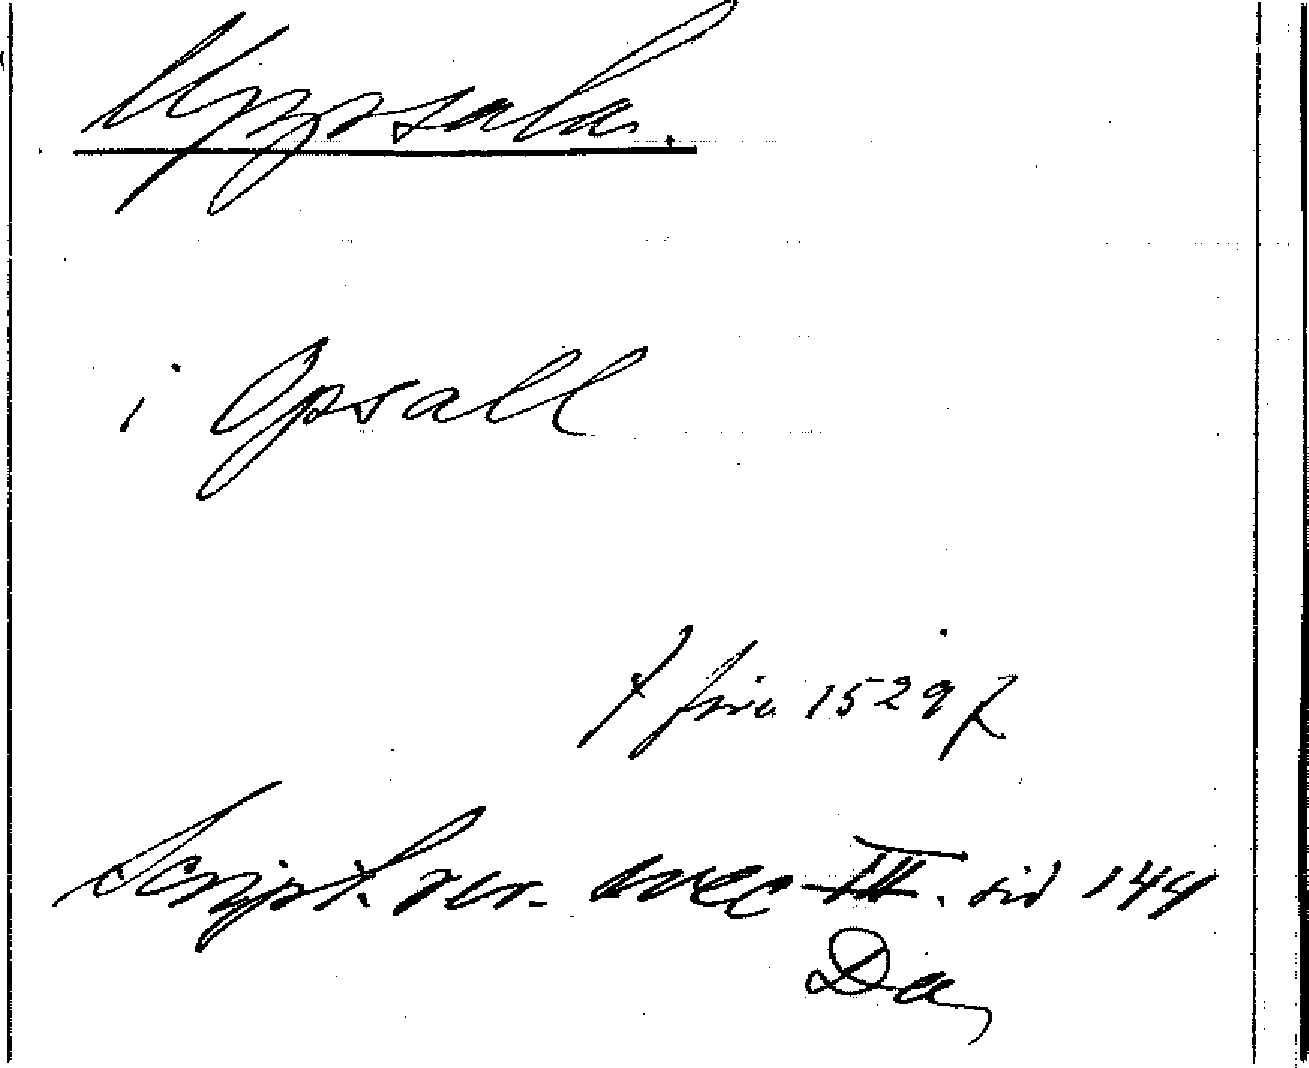 Uppsala.
i Opsall
[före 1529]
Script. rer. svec III. sid 144
Da